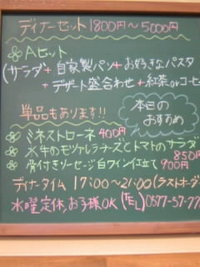 ディナーセット 1800円〜5000円
Aセット
(サラダ+自家製パン+お好きなパスタ
+デザート盛合わせ+紅茶orコーヒ
単品もあります!!
本日の
おすすめ
ミネストローネ 400円
牛のモッツァレラチーズとトマトのサラダ
850円
骨付きソーセージ白ワイン仕立て 900円
ディナータイム 17:00〜21:00(ラストオーダ
水曜定休、お子様OK (TEL) 0577-57-77